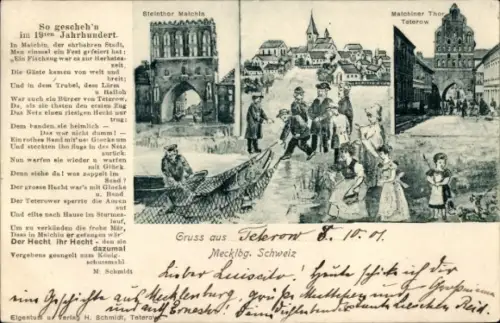 So gescheh'n
im 19ten Jahrhundert.
In Malchin, der ehrbahren Stadt,
Man einmal ein Fest gefeiert hat:
„Ein Fischzug war es zur Herbstes-
zeit.
Die Gäste kamen von weit und
breit;
Und in dem Trubel, dem Lärm
u. Halloh
War auch ein Bürger von Teterow,
Da, als sie thaten den ersten Zug
Das Netz einen riesigen Hecht nur
trug;
Dem banden sie heimlich —
Das war nicht dumm! —
Ein rothes Band mit'ner Glocke um
Und steckten ihn flugs in der Netz
zurück.
Nun warfen sie wieder u. warten
mit Glück.
Denn siehe da! was zappelt im
Band?
Der grosse Hecht war's mit Glocke
u. Band
Der Teterower sperrte die Augen
auf
Und eilte nach Hause im Sturmes-
lauf,
Um zu verkünden die frohe Mär,
Dass in Malchin er gefangen wär'
Der Hecht ihr Hecht - den sie
dazumal
Vergebens geangelt zum König-
schussmahl
M. Schmidt
Steinthor Malchin
Malchiner Thor
Teterow
Gruss aus Teterow 8. 10. 01.
Mecklbg. Schweiz
Lieber Luiscito! Heute schicke ich dir
eine Geschichte aus Mecklenburg, grüsse
und Ernesto!
Eigentum u. Verlag H. Schmidt, Teterow